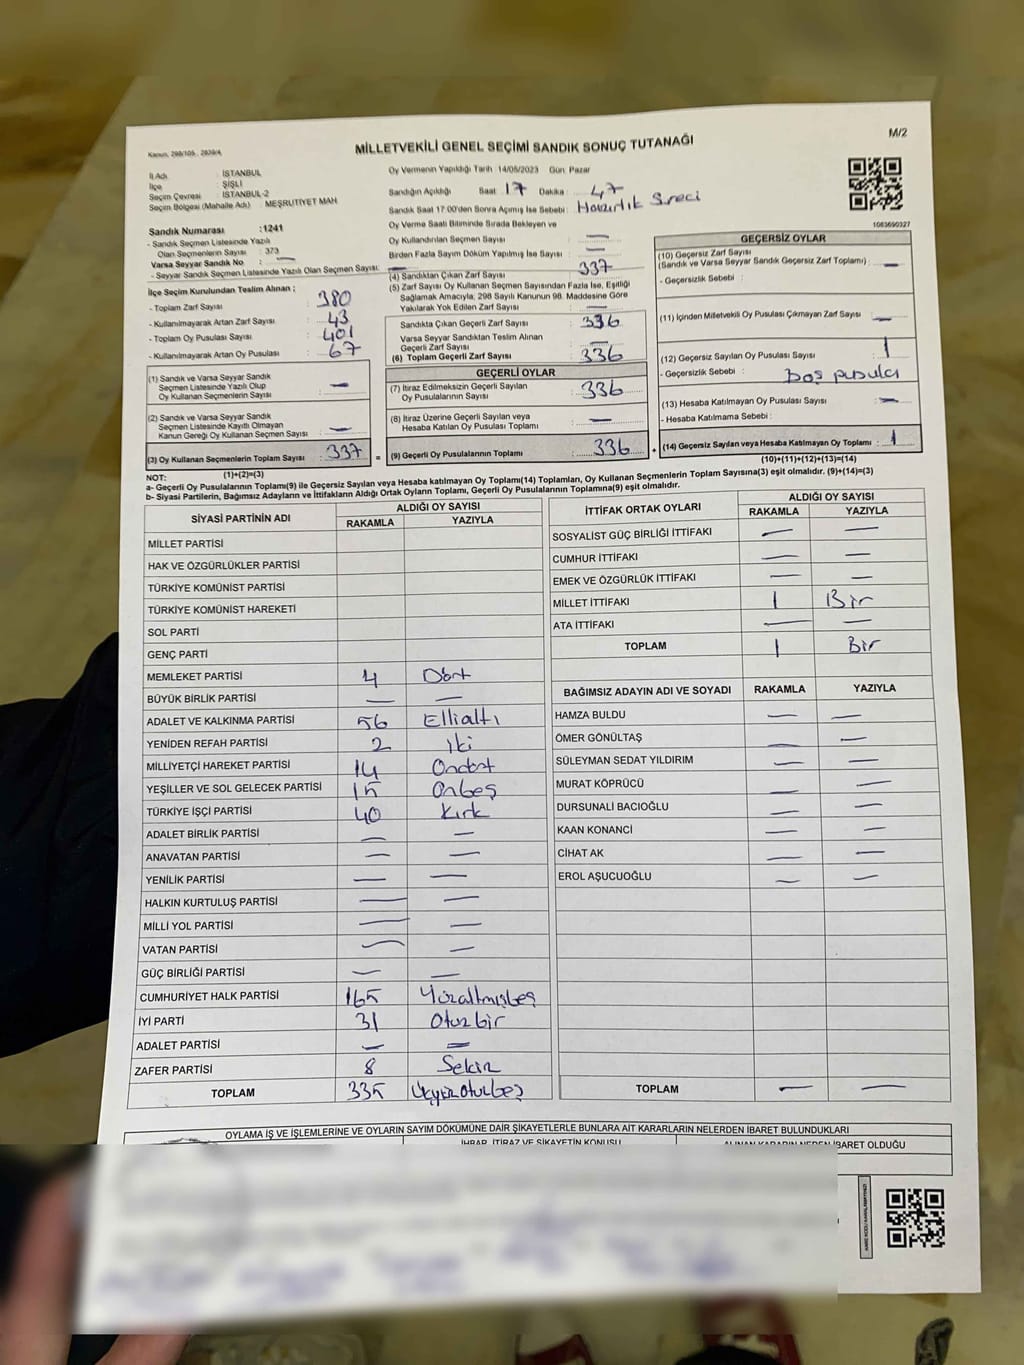 Kanun, 298/105, 2839/4,
MİLLETVEKİLİ GENEL SEÇİMİ SANDIK SONUÇ TUTANAĞI
M/2
İl Adı : İSTANBUL
İlçe : ŞİŞLİ
Seçim Çevresi : İSTANBUL-2
Seçim Bölgesi (Mahalle Adı) : MEŞRUTİYET MAH
Oy Vermenin Yapıldığı Tarih 14/05/2023 Gün Pazar
Sandığın Açıldığı Saat : 17 Dakika : 47
Sandık Saat 17.00'den Sonra Açımış İse Sebebi : Hazırlık Süreci
Oy Verme Saati Bitiminde Sırada Bekleyen ve
Oy Kullandırılan Seçmen Sayısı : —
Birden Fazla Sayım Döküm Yapılmış İse Sayısı : —
1083690327
Sandık Numarası :1241
- Sandık Seçmen Listesinde Yazılı
Olan Seçmenlerin Sayısı : 373
Varsa Seyyar Sandık No : —
- Seyyar Sandık Seçmen Listesinde Yazılı Olan Seçmen Sayısı: —
İlçe Seçim Kurulundan Teslim Alınan ;
- Toplam Zarf Sayısı : 380
- Kullanılmayarak Artan Zarf Sayısı : 43
- Toplam Oy Pusulası Sayısı : 401
- Kullanılmayarak Artan Oy Pusulası : 67
(1) Sandık ve Varsa Seyyar Sandık
Seçmen Listesinde Yazılı Olup
Oy Kullanan Seçmenlerin Sayısı : —
(2) Sandık ve Varsa Seyyar Sandık
Seçmen Listesinde Kayıtlı Olmayan
Kanun Gereği Oy Kullanan Seçmen Sayısı : —
(3) Oy Kullanan Seçmenlerin Toplam Sayısı : 337
(1)+(2)=(3)
(4) Sandıktan Çıkan Zarf Sayısı : 337
(5) Zarf Sayısı Oy Kullanan Seçmen Sayısından Fazla İse, Eşitliği
Sağlamak Amacıyla, 298 Sayılı Kanunun 98. Maddesine Göre
Yakılarak Yok Edilen Zarf Sayısı : —
Sandıkta Çıkan Geçerli Zarf Sayısı : 336
Varsa Seyyar Sandıktan Teslim Alınan
Geçerli Zarf Sayısı : —
(6) Toplam Geçerli Zarf Sayısı : 336
GEÇERLİ OYLAR
(7) İtiraz Edilmeksizin Geçerli Sayılan
Oy Pusulalarının Sayısı : 336
(8) İtiraz Üzerine Geçerli Sayılan veya
Hesaba Katılan Oy Pusulası Toplamı : —
= (9) Geçerli Oy Pusulalarının Toplamı : 336 +
GEÇERSİZ OYLAR
(10) Geçersiz Zarf Sayısı
(Sandık ve Varsa Seyyar Sandık Geçersiz Zarf Toplamı) : —
- Geçersizlik Sebebi :
(11) İçinden Milletvekili Oy Pusulası Çıkmayan Zarf Sayısı : —
(12) Geçersiz Sayılan Oy Pusulası Sayısı : 1
- Geçersizlik Sebebi : boş pusula
(13) Hesaba Katılmayan Oy Pusulası Sayısı : —
- Hesaba Katılmama Sebebi :
(14) Geçersiz Sayılan veya Hesaba Katılmayan Oy Toplamı : 1
(10)+(11)+(12)+(13)=(14)
NOT:
a- Geçerli Oy Pusulaları Toplamı(9) ile Geçersiz Sayılan veya Hesaba katılmayan Oy Toplamı(14) Toplamları, Oy Kullanan Seçmenlerin Toplam Sayısına(3) eşit olmalıdır. (9)+(14)=(3)
b- Siyasi Partilerin, Bağımsız Adayların ve İttifakların Aldığı Ortak Oyların Toplamı, Geçerli Oy Pusulalarının Toplamına(9) eşit olmalıdır.
SİYASİ PARTİNİN ADI
ALDIĞI OY SAYISI
RAKAMLA YAZIYLA
MİLLET PARTİSİ
HAK VE ÖZGÜRLÜKLER PARTİSİ
TÜRKİYE KOMÜNİST PARTİSİ
TÜRKİYE KOMÜNİST HAREKETİ
SOL PARTİ
GENÇ PARTİ
MEMLEKET PARTİSİ 4 Dört
BÜYÜK BİRLİK PARTİSİ — —
ADALET VE KALKINMA PARTİSİ 56 Ellialtı
YENİDEN REFAH PARTİSİ 2 İki
MİLLİYETÇİ HAREKET PARTİSİ 14 Ondört
YEŞİLLER VE SOL GELECEK PARTİSİ 15 Onbeş
TÜRKİYE İŞÇİ PARTİSİ 40 Kırk
ADALET BİRLİK PARTİSİ — —
ANAVATAN PARTİSİ — —
YENİLİK PARTİSİ — —
HALKIN KURTULUŞ PARTİSİ — —
MİLLİ YOL PARTİSİ — —
VATAN PARTİSİ — —
GÜÇ BİRLİĞİ PARTİSİ — —
CUMHURİYET HALK PARTİSİ 165 Yüzaltmışbeş
İYİ PARTİ 31 Otuzbir
ADALET PARTİSİ — —
ZAFER PARTİSİ 8 Sekiz
TOPLAM 335 Üçyüzotuzbeş
İTTİFAK ORTAK OYLARI
ALDIĞI OY SAYISI
RAKAMLA YAZIYLA
SOSYALİST GÜÇ BİRLİĞİ İTTİFAKI — —
CUMHUR İTTİFAKI — —
EMEK VE ÖZGÜRLÜK İTTİFAKI — —
MİLLET İTTİFAKI 1 Bir
ATA İTTİFAKI — —
TOPLAM 1 Bir
BAĞIMSIZ ADAYIN ADI VE SOYADI RAKAMLA YAZIYLA
HAMZA BULDU — —
ÖMER GÖNÜLTAŞ — —
SÜLEYMAN SEDAT YILDIRIM — —
MURAT KÖPRÜCÜ — —
DURSUNALİ BACIOĞLU — —
KAAN KONANCİ — —
CİHAT AK — —
EROL AŞUCUOĞLU — —
TOPLAM — —
OYLAMA İŞ VE İŞLEMLERİNE VE OYLARIN SAYIM DÖKÜMÜNE DAİR ŞİKAYETLERLE BUNLARA AİT KARARLARIN NELERDEN İBARET BULUNDUKLARI
İHBAR, İTİRAZ VE ŞİKAYETİN KONUSU
ALINAN KARARIN NEDEN İBARET OLDUĞU